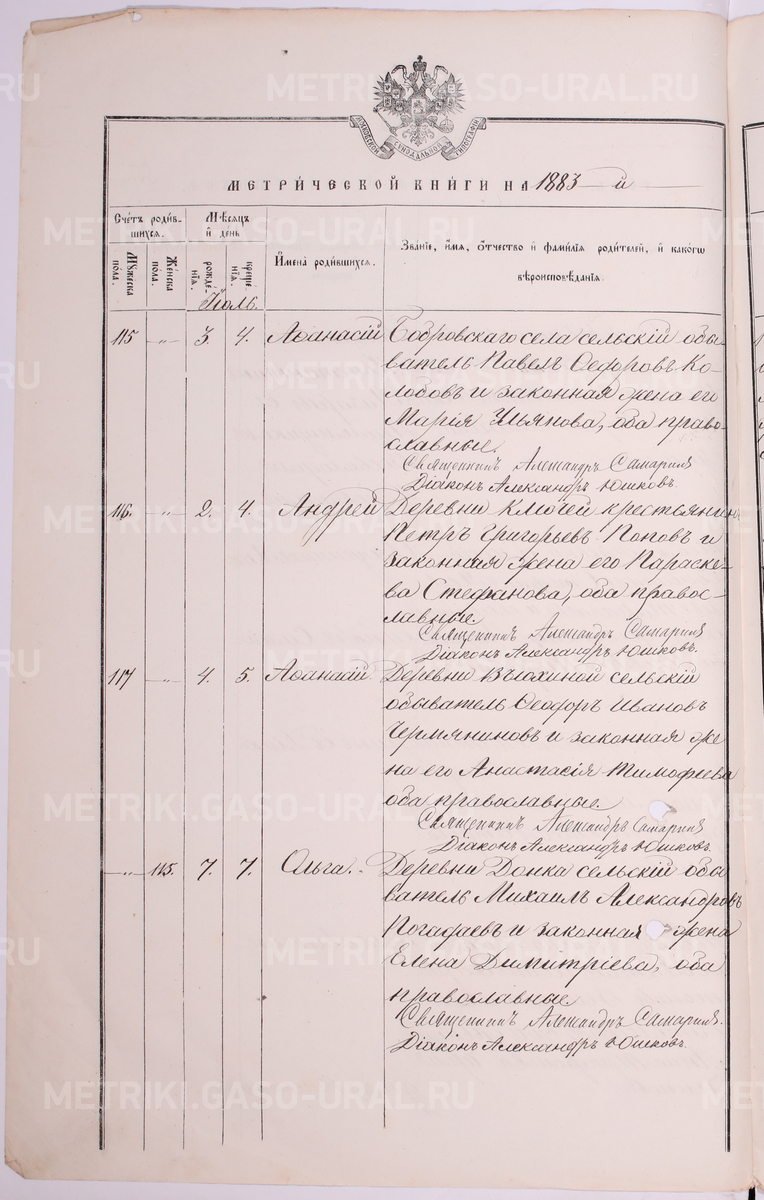 МОСКОВСКОЙ СѴНОДАЛЬНОЙ ТИПОГРАФІИ
МЕТРИ́ЧЕСКОЙ КНИ́ГИ НА 1883 й
Сче́тъ роди́вшихся.
Му́жеска по́ла.
Же́нска по́ла.
Мѣ́сяцъ и҆ день
рожде́нїѧ.
креще́нїѧ.
И҆мена̀ роди́вшихсѧ.
Зва́нїе, и҆́мѧ, ѻ҆́тчество и҆ фами́лїѧ роди́телей, и҆ како́гѡ
вѣроисповѣ́данїѧ.
Іюль.
115 „ 3. 4. Аѳанасій Бобровскаго села сельскій обы-
ватель Павелъ Ѳедоровъ Ко-
лобовъ и законная жена его
Марія Ульянова, оба право-
славные.
Священникъ Александръ
Діаконъ Александръ Юшковъ.
116. „ 2. 4. Андрей Деревни Ключей крестьянинъ
Петръ Григорьевъ Поповъ и
законная жена его Параске-
ва Стефанова, оба правос-
лавные.
Священникъ Александръ
Діаконъ Александръ Юшковъ.
117 „ 4. 5. Аѳанасій Деревни Вьюхиной сельскій
обыватель Ѳеодоръ Ивановъ
Чермяниновъ и законная же
на его Анастасія Тимофеева
оба православные.
Священникъ Александръ
Діаконъ Александръ Юшковъ.
„ 115. 7. 7. Ольга. Деревни Донка сельскій обы
ватель Михаилъ Александровъ
Погадаевъ и законная жена
Елена Димитріева, оба
православные
Священникъ Александръ
Діаконъ Александръ Юшковъ.
METRIKI.GASO-URAL.RU